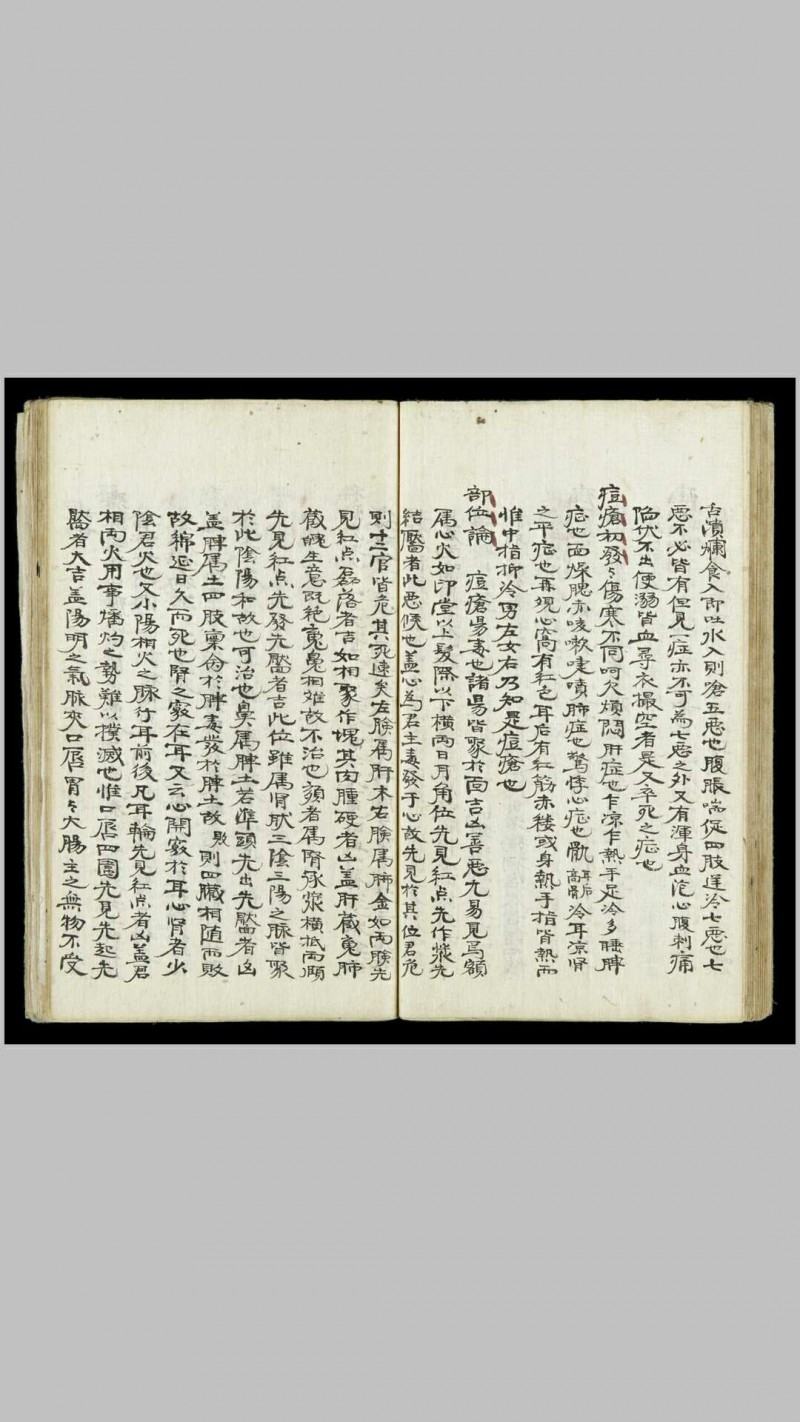 舌潰爛食入即吐水入則嗆五惡也腹脹喘促四肢逆冷七惡也七
惡不必皆有但見一症亦不可為七惡之外又有渾身血泡心腹刺痛
陷伏不出便溺皆血尋衣撮空者是又卒死之症也
痘瘡初發〻傷寒不同呵欠煩悶肝症也乍凉乍熱手足冷多睡脾
症也面燥腮赤咳嗽嚏噴肺症也驚悸心症也骩耳后高骨冷耳凉腎
之平症也再現心窩有紅色耳后有紅筋赤縷或身熱手指皆熱而
惟中指抑冷男左女右乃知是痘瘡也
部位論 痘瘡陽毒也諸陽皆聚於面吉凶善惡尢易見焉額
属心火如印堂以上髮際以下橫両日月角位先見紅点先作漿先
結靨者此惡候也盖心為君主毒發于心故先見於其位君危
則十二官皆危其死速矣左臉属肝木右臉属肺金如両臉先
見紅点磊落者吉如相聚作塊其肉腫硬者凶盖肝藏䰟肺
藏魄生意既絶䰟魄相離故不治也頦者属腎承漿橫抵両頤
先見紅点先發先靨者吉此位雖属腎肰三陰三陽之脉皆聚
於此陰陽和故也可治也鼻属脾土若準頭先出先靨者凶
盖脾属土四肢稟命於脾毒發於脾土故敗則四臓相随而敗
故綿延日久而死也腎之竅在耳又云心開竅於耳心腎者少
陰君火也又小陽相火之脉行耳前後凡耳輪先見紅点者凶盖君
相両火用事燔灼之勢難以撲滅也惟口唇四圍先見先起先
靨者大吉盖陽明之氣脉夾口唇胃〻大腸主之無物不受